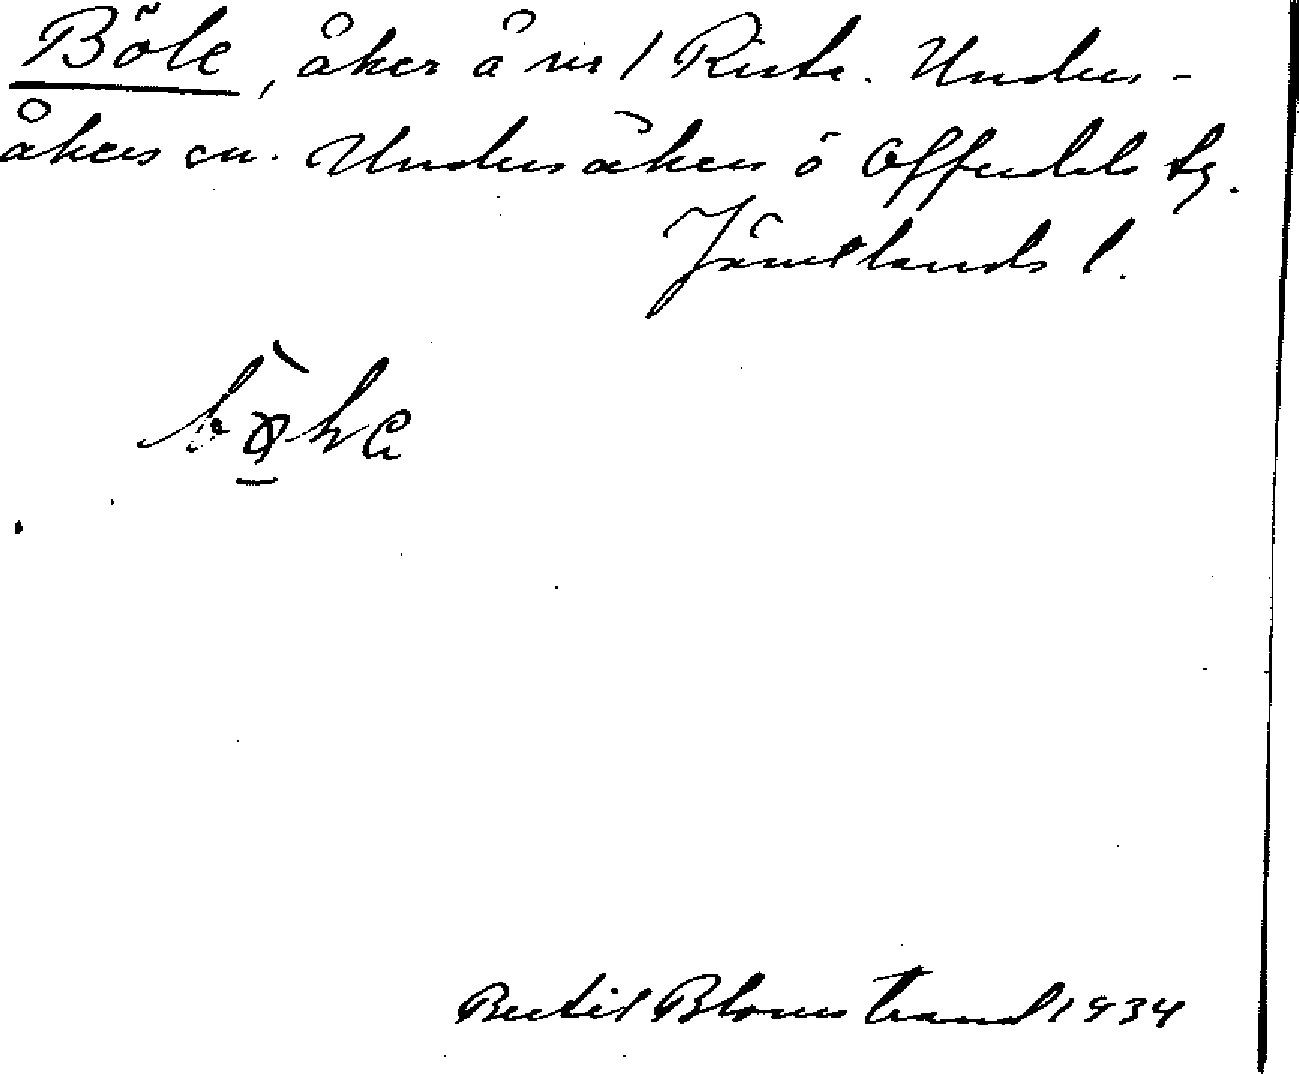 Böle, åker å nr 1 Riste. Under-
åkers sn. Undersåkers o Offerdals tg.
Jämtlands l.
Bertil Blomstrand 1934